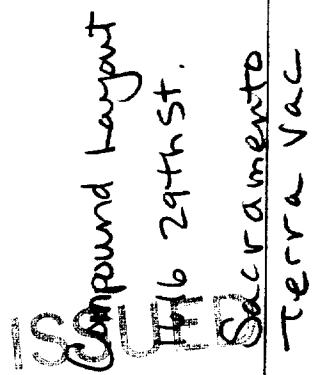 Compound Layout
1616 29th St.
Sacramento
Terra Vac
ISSUED